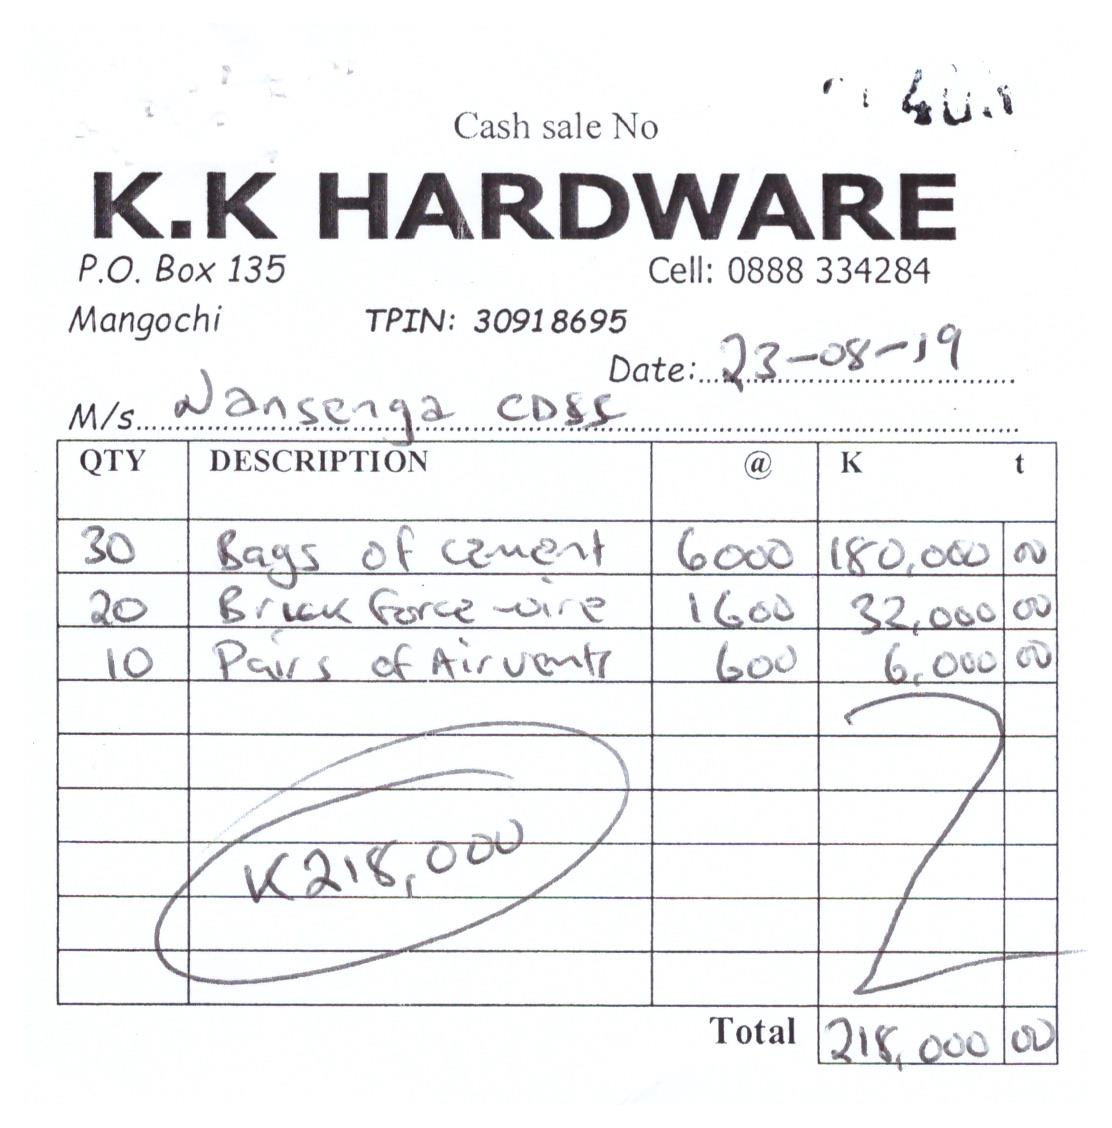 Cash sale No
K.K HARDWARE
P.O. Box 135 Cell: 0888 334284
Mangochi TPIN: 30918695
Date: 23-08-19
M/s Nansenga CDSS
QTY DESCRIPTION @ K t
30 Bags of cement 6000 180,000 00
20 Brick force wire 1600 32,000 00
10 Pairs of Airvents 600 6,000 00
K218,000
Total 218,000 00